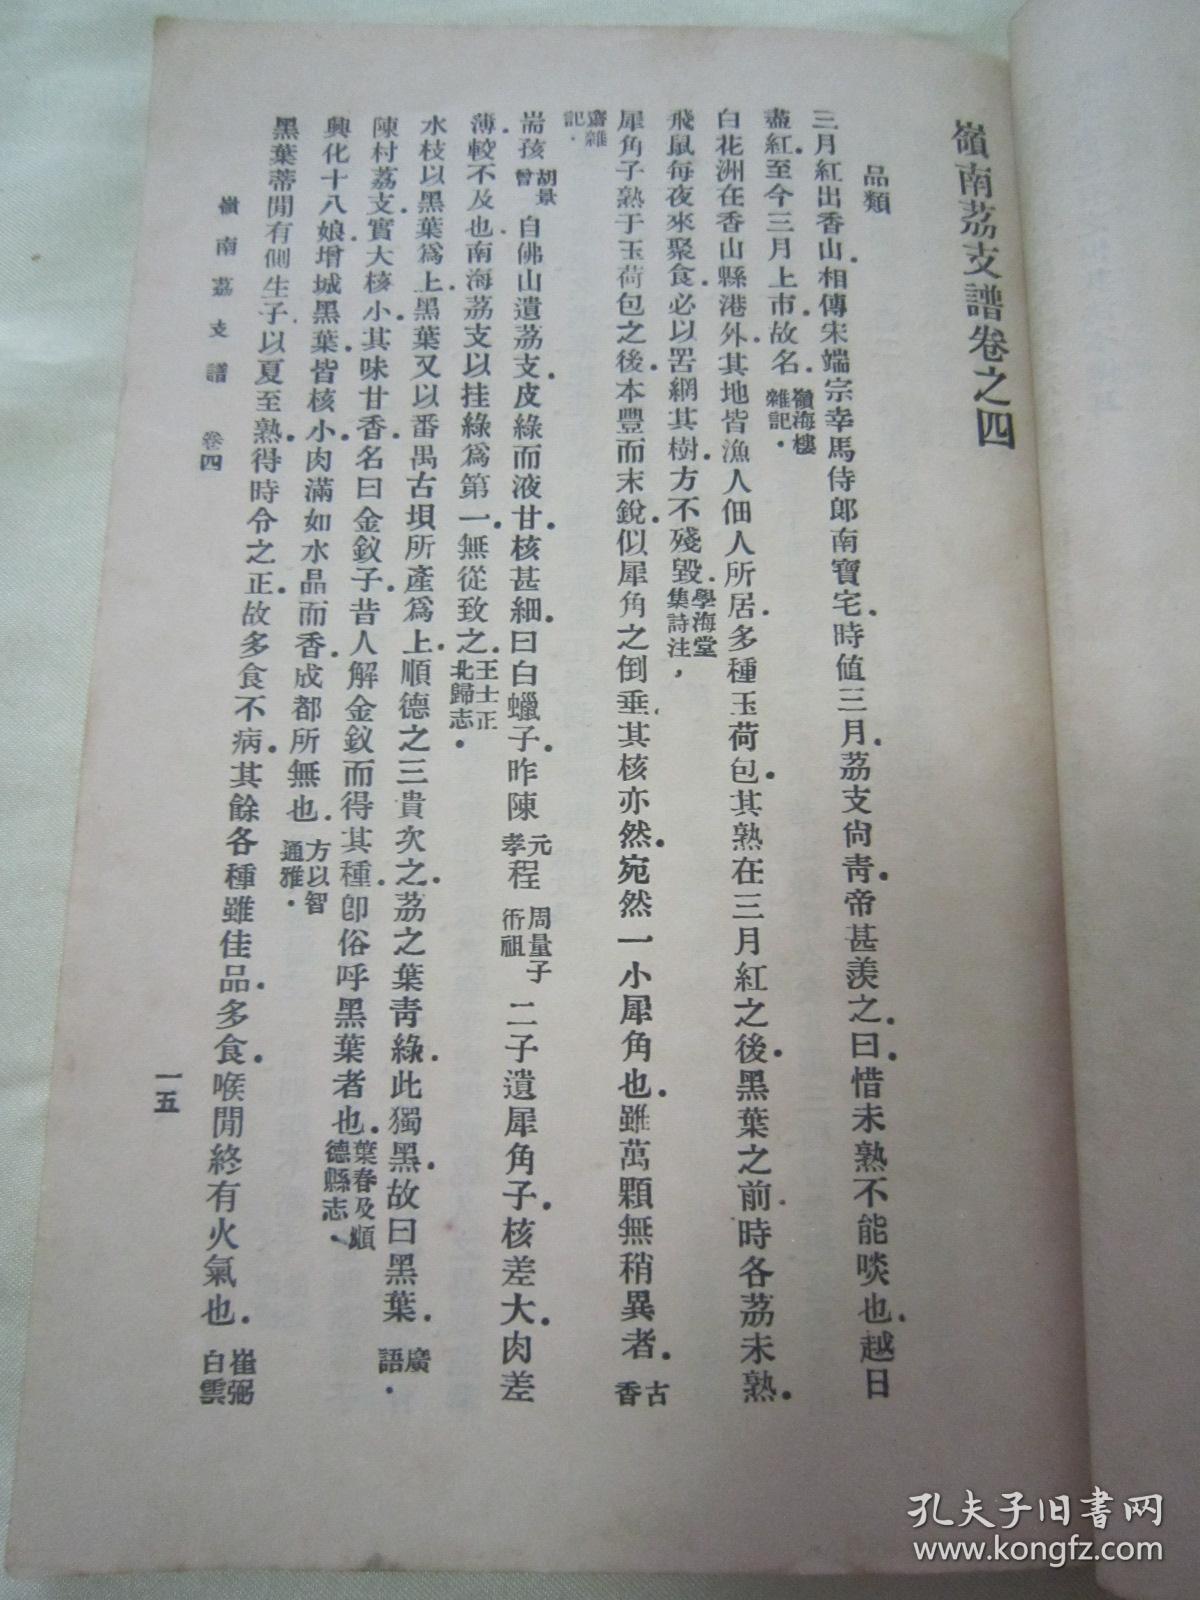 嶺南荔支譜卷之四
品類
三月紅出香山相傳宋端宗幸馬侍郎南寶宅時值三月荔支尙靑帝甚羨之曰惜未熟不能啖也越日
盡紅至今三月上市故名嶺海樓雜記
白花洲在香山縣港外其地皆漁人佃人所居多種玉荷包其熟在三月紅之後黑葉之前時各荔未熟
飛鼠每夜來聚食必以罟網其樹方不殘毀學海堂集詩注
犀角子熟于玉荷包之後本豐而末銳似犀角之倒垂其核亦然宛然一小犀角也雖萬顆無稍異者古香
齋雜記
耑孩胡景曾自佛山遺荔支皮綠而液甘核甚細曰白蠟子昨陳元孝程周量子衍祖二子遺犀角子核差大肉差
薄較不及也南海荔支以挂綠爲第一無從致之王士正北歸志
水枝以黑葉爲上黑葉又以番禺古垻所產爲上順德之三貴次之荔之葉靑綠此獨黑故曰黑葉廣語
陳村荔支實大核小其味甘香名曰金釵子昔人解金釵而得其種卽俗呼黑葉者也葉春及順德縣志
興化十八娘增城黑葉皆核小肉滿如水晶而香成都所無也方以智通雅
黑葉蒂閒有側生子以夏至熟得時令之正故多食不病其餘各種雖佳品多食喉閒終有火氣也崔弼白雲
嶺南荔支譜 卷四
一五
孔夫子旧书网
www.kongfz.com